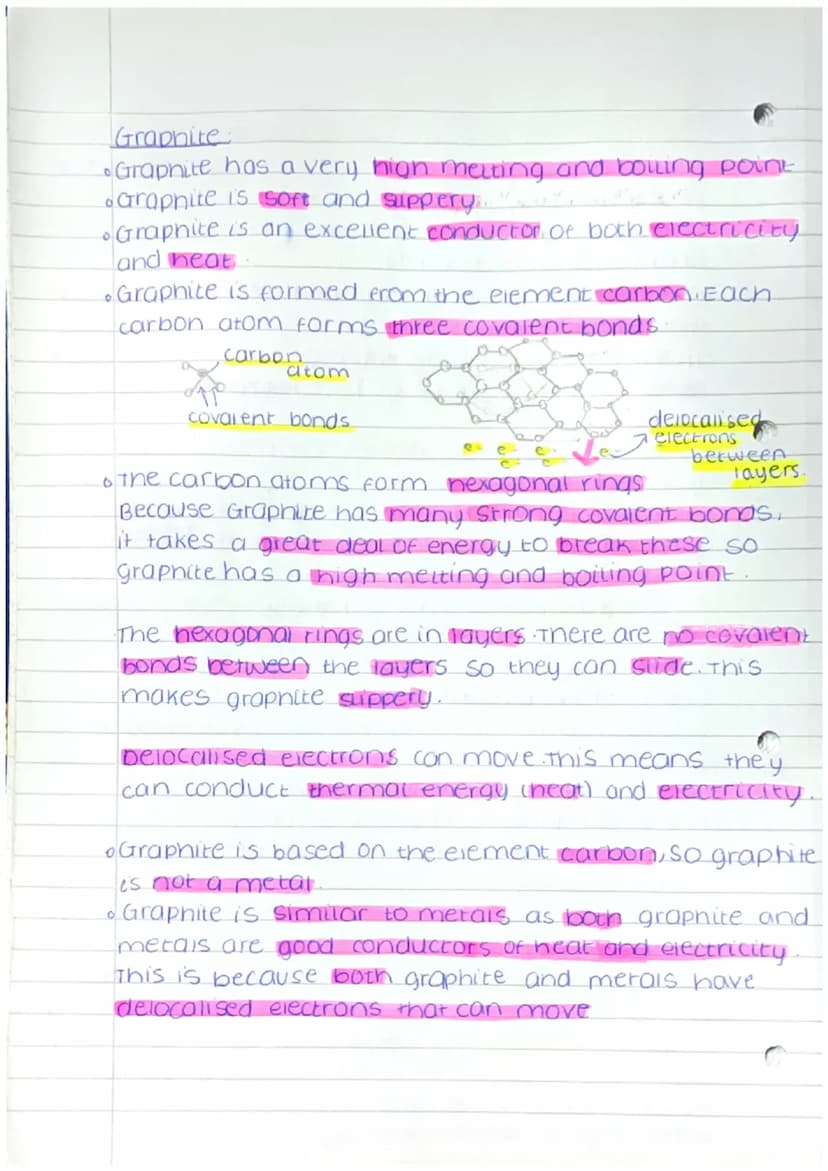 Graphite:
Graphite has a very high melting and boiling point
Graphite is soft and slippery.
Graphite is an excellent conductor of both electricity
and heat.
Graphite is formed from the element carbon. Each
carbon atom forms three covalent bonds
carbon
atom
covalent bonds
delocalised
electrons
between
layers.
e- e- e- e-
e- e-
The carbon atoms form hexagonal rings
Because Graphite has many strong covalent bonds,
it takes a great deal of energy to break these so
graphite has a high melting and boiling point.
The hexagonal rings are in layers. There are no covalent
bonds between the layers so they can slide. This
makes graphite slippery.
Delocalised electrons can move. This means they
can conduct thermal energy (heat) and electricity.
Graphite is based on the element carbon, so graphite
is not a metal.
Graphite is similar to metals as both graphite and
metals are good conductors of heat and electricity.
This is because both graphite and metals have
delocalised electrons that can move